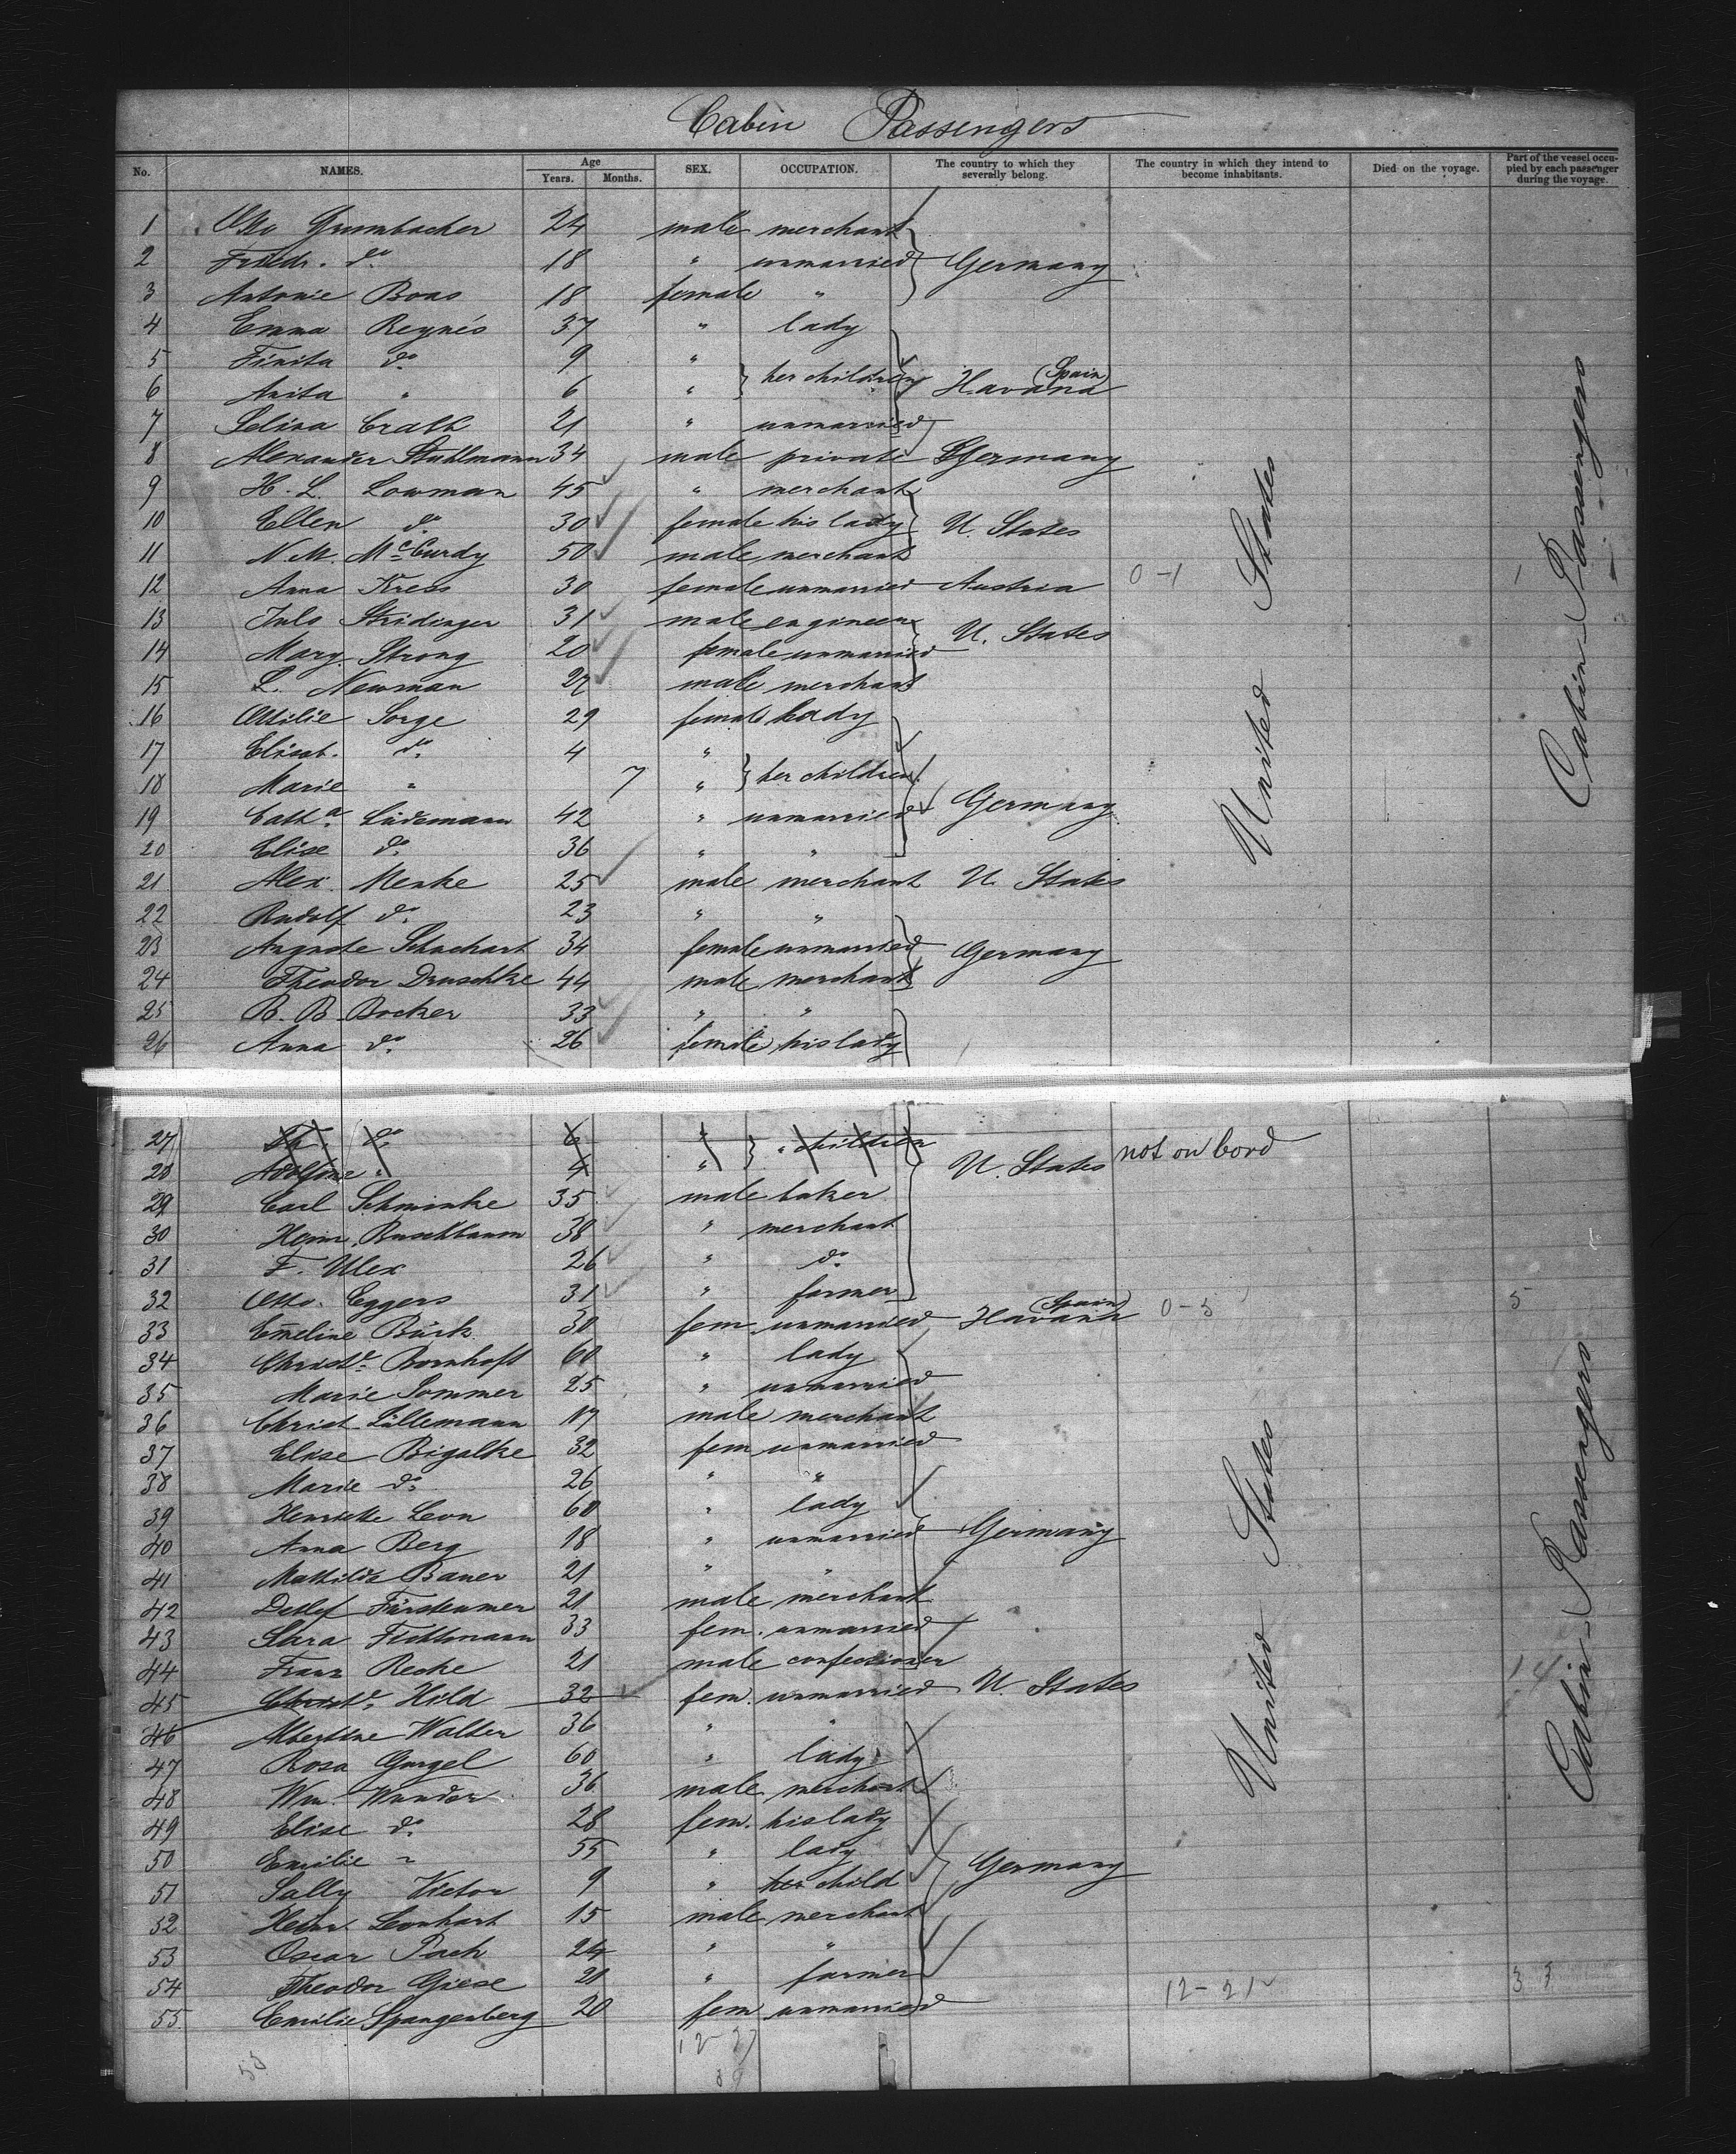 Cabin Passengers
No. NAMES. Age Years. Months. SEX. OCCUPATION. The country to which they severally belong. The country in which they intend to become inhabitants. Died on the voyage. Part of the vessel occupied by each passenger during the voyage.
1 Otto Grumbacher 24 male merchant
2 Friedr. do 18 " unmarried Germany
3 Antonie Boas 18 female "
4 Emma Reynés 37 " lady
5 Finita do 9 "
6 Anita " 6 " her children Havana (Spain)
7 Selina Crath 21 " unmarried
8 Alexander Stuhlmann 34 male private Germany
9 H. L. Lowman 45 " merchant
10 Ellen do 30 female his lady U. States
11 N. M. McCurdy 50 male merchant
12 Anna Kress 30 female unmarried Austria 0-1 1
13 Juls Stridinger 31 male engineer
14 Mary Strong 20 female unmarried U. States
15 L. Newman 27 male merchant
16 Ottilie Sorge 29 female lady
17 Elisab. do 4 "
18 Marie " 7 " her children
19 Catha Lüdemann 42 " unmarried Germany
20 Elise do 36 " "
21 Alex Menke 25 male merchant U. States
22 Rudolf do 23 " "
23 Auguste Schuchart 34 female unmarried Germany
24 Theodor Druschke 44 male merchant
25 B. B. Bocker 33 " "
26 Anna do 26 female his lady
United States
Cabin Passengers
27 Th do 6 " " children
28 Adolfine " 4 " U. States not on bord
29 Carl Schminke 35 male baker
30 Heinr. Buschbaum 38 " merchant
31 F. Ulex 26 " do
32 Otto Eggers 31 " farmer
33 Emeline Bürk 30 fem. unmarried Havana (Spain) 0-5 5
34 Christe Bornhoft 60 " lady
35 Marie Sommer 25 " unmarried
36 Christ. Lüllemann 17 male merchant
37 Elise Bigalke 32 fem unmarried
38 Marie do 26 " "
39 Henriette Leon 60 " lady
40 Anna Berg 18 " unmarried Germany
41 Mathilde Bauer 21 " "
42 Detlef Fürstenwer 21 male merchant
43 Sara Fichtmann 33 fem. unmarried
44 Franz Reske 21 male confectioner 14
45 Christe Hild 32 fem. unmarried U. States
46 Albertine Walter 36 " "
47 Rosa Gurgel 60 " lady
48 Wm. Wunder 36 male merchant
49 Elise do 28 fem. his lady
50 Emilie " 55 " lady
51 Sally Victor 9 " her child Germany
52 Heinr Leonhart 15 male merchant
53 Oscar Pach 24 " "
54 Theodor Giese 21 " farmer 12-21 33
55 Emilie Spangenberg 20 fem unmarried
United States
Cabin Passengers
55 12-27